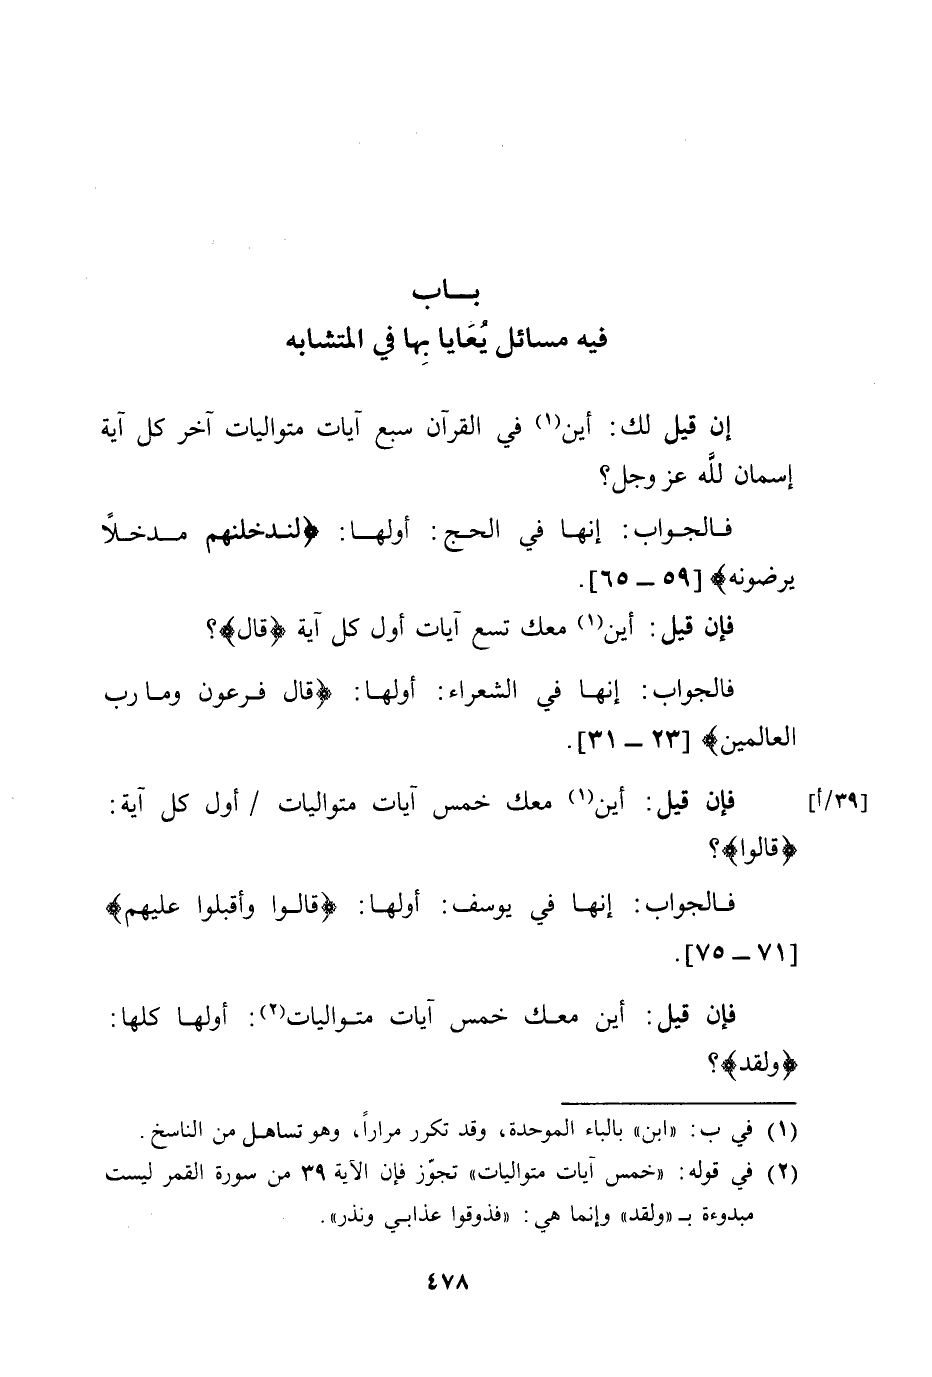 بـــاب
فيه مسائل يُعَايا بِها في المتشابه
إن قيل لك: أين(١) في القرآن سبع آيات متواليات آخر كل آية
إسمان للَّه عز وجل؟
فـالجـواب: إنهـا في الحـج: أولهـا: ﴿لنـدخلنهم مـدخـلاً
يرضونه﴾ [٥٩ ــ ٦٥].
فإن قيل: أين(١) معك تسع آيات أول كل آية ﴿قال﴾؟
فالجواب: إنهـا في الشعراء: أولهـا: ﴿قال فـرعون ومـا رب
العالمين﴾ [٢٣ ــ ٣١].
[٣٩/أ] فإن قيل: أين(١) معك خمس آيات متواليات / أول كل آية:
﴿قالوا﴾؟
فـالجواب: إنهـا في يوسف: أولهـا: ﴿قالـوا وأقبلوا عليهم﴾
[٧١ ــ ٧٥].
فإن قيل: أين معـك خمس آيات متـواليات(٢): أولهـا كلها:
﴿ولقد﴾؟
(١) في ب: «ابن» بالباء الموحدة، وقد تكرر مراراً، وهو تساهـل من الناسخ.
(٢) في قوله: «خمس آيات متواليات» تجوّز فإن الآية ٣٩ من سورة القمر ليست
مبدوءة بـ «ولقد» وإنما هي: «فذوقوا عذابـي ونذر».
٤٧٨